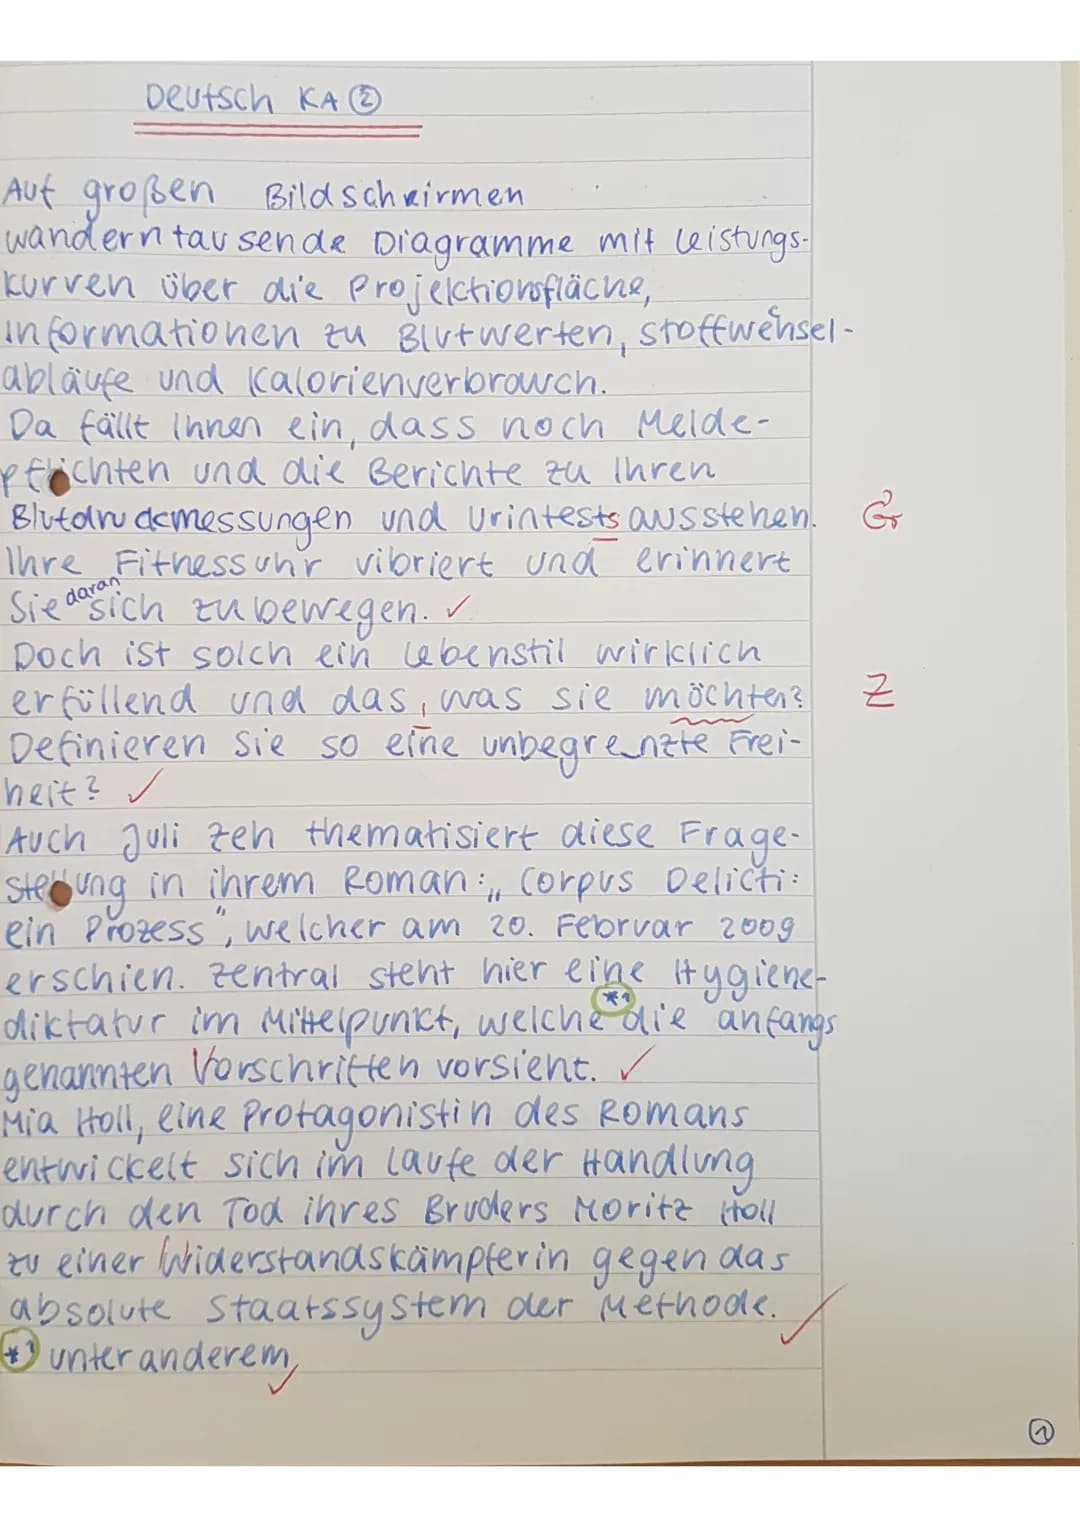 Deutsch KA ②
Auf großen Bildscheirmen
wandern tausende Diagramme mit Leistungs-
kurven über die Projektionsfläche,
Informationen zu Blutwerten, Stoffwehsel-
c
abläufe und Kalorienverbrauch.
Da fällt Ihnen ein, dass noch Melde-
pflichten und die Berichte zu Ihren
Blutdruckmessungen und Urintests ausstehen. Gr
Ihre Fitnessuhr vibriert und erinnert
Sie daran sich zu bewegen. ✓
Doch ist solch ein Lebenstil wirklich
erfüllend und das, was sie möchten? Z
Definieren Sie so eine unbegrenzte Frei-
heit? ✓
Auch Juli Zeh thematisiert diese Frage-
stellung in ihrem Roman: „Corpus Delicti:
ein Prozess“, welcher am 20. Februar 2009
erschien. Zentral steht hier eine Hygiene-
diktatur im Mittelpunkt, welche *1 die anfangs
genannten Vorschriften vorsieht. ✓
Mia Holl, eine Protagonistin des Romans
entwickelt sich im Laufe der Handlung
durch den Tod ihres Bruders Moritz Holl
zu einer Widerstandskämpferin gegen das
absolute Staatssystem der Methode. ✓
*1 unter anderem, ✓
①